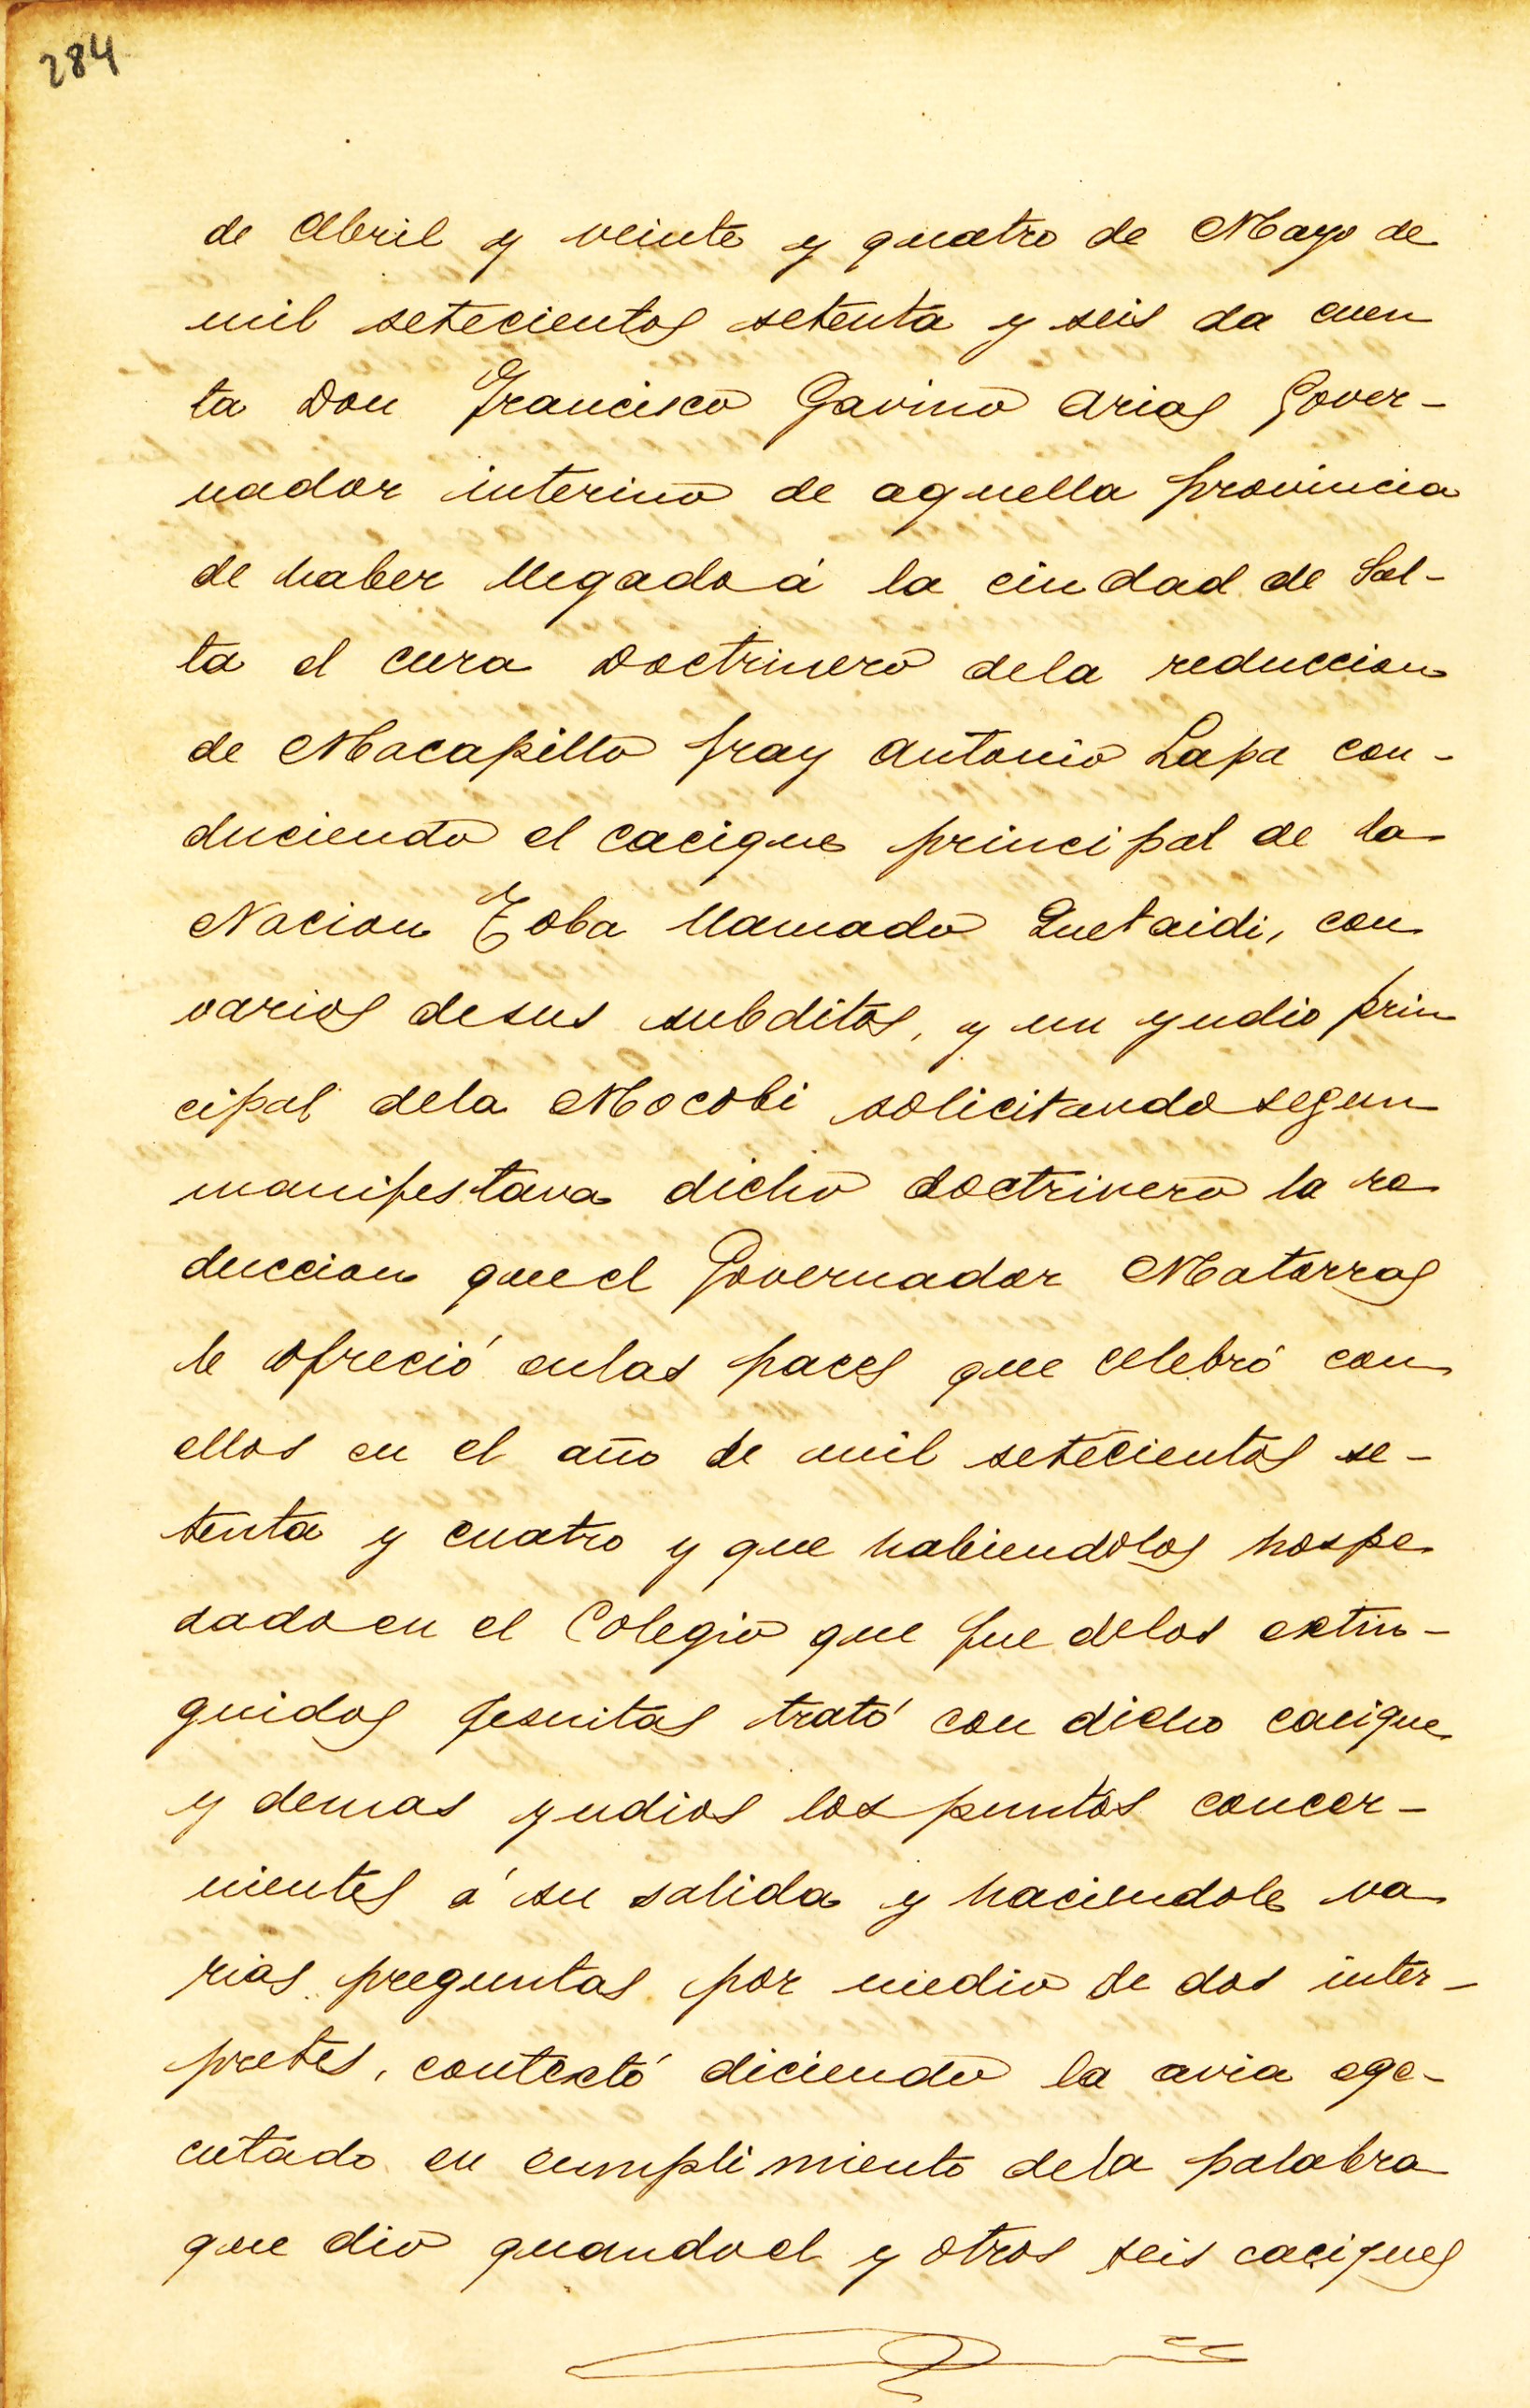 284
de Abril y veinte y quatro de Mayo de
mil setecientos setenta y seis da cuen
ta Don Francisco Gavino Arias Gover-
nador interino de aquella provincia
de haber llegado á la ciudad de Sal-
ta el cura Doctrinero dela reduccion
de Macapillo fray Antonio Lapa con-
duciendo el cacique principal de la
Nacion Toba llamado Quetaidi, con
varios desus subditos, y un yndio prin
cipal dela Mocobi solicitando segun
manifestava dicho doctrinero la re
duccion queel Governador Matorras
le ofreció enlas paces que celebró con
ellos en el año de mil setecientos se-
tenta y cuatro y que habiendolos hospe
dado en el Colegio que fue delos extin-
guidos Jesuitas trató con dicho cacique
y demas yndios los puntos concer-
nientes á su salida y haciendole va
rias preguntas por medio de dos inter-
pretes, contextó diciendo la avia ege-
cutado en cumplimiento dela palabra
que dio quando el y otros seis caciques